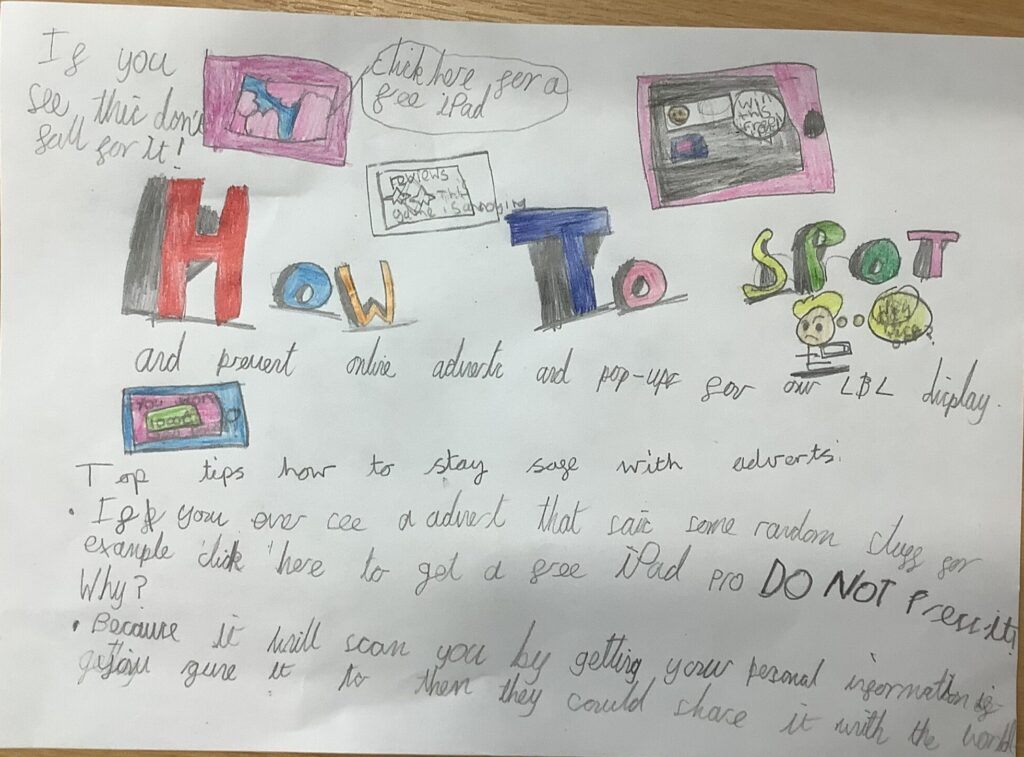 If you
see this don't
fall for it!
Click here for a
free iPad
win
this
reviews:
This
game is annoying
HOW TO SPOT
and prevent online adverts and pop-ups for our LBL display.
you won
Top tips how to stay safe with adverts:
• If you ever see a advert that sais some random stuff for
example 'click 'here to get a free iPad pro DO NOT Press it!
Why?
• Because it will scan you by getting your personal information if
you give it to them they could share it with the world